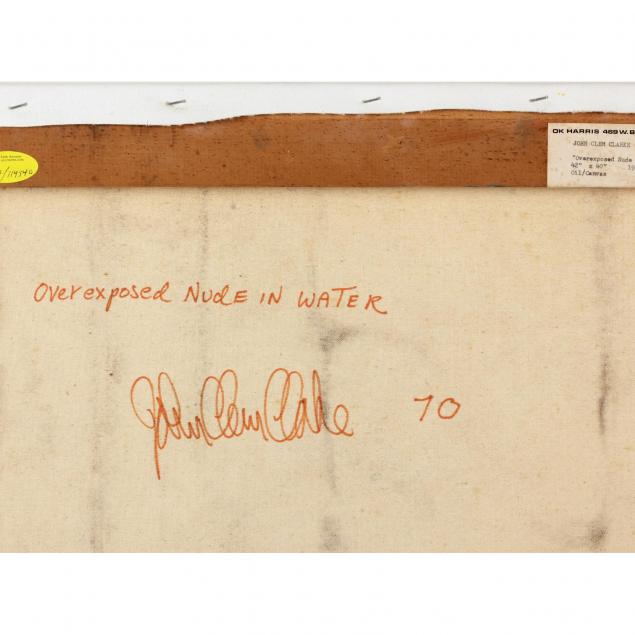 OK HARRIS 469 W. B
JOHN CLEM CLARKE
"Overexposed Nude
42" x 40" 19
Oil/Canvas
Overexposed NUdE IN WATER
John Clem Clarke 70